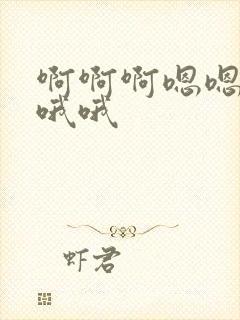 啊啊啊嗯嗯
哦哦
虾君